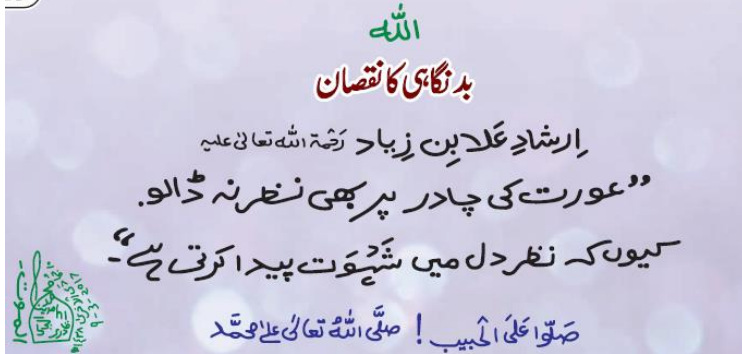 اللہ
بدنگاہی کا نقصان
اِرشادِ عَلا بِن زِیاد رَحْمَۃُ اللہ تعالٰی علیہ
”عورت کی چادر پر بھی نظر نہ ڈالو۔
کیوں کہ نظر دل میں شَہْوَت پیدا کرتی ہے“۔
صَلُّوا عَلَی الْحَبِیب! صلَّی اللہُ تعالٰی علٰی محمَّد